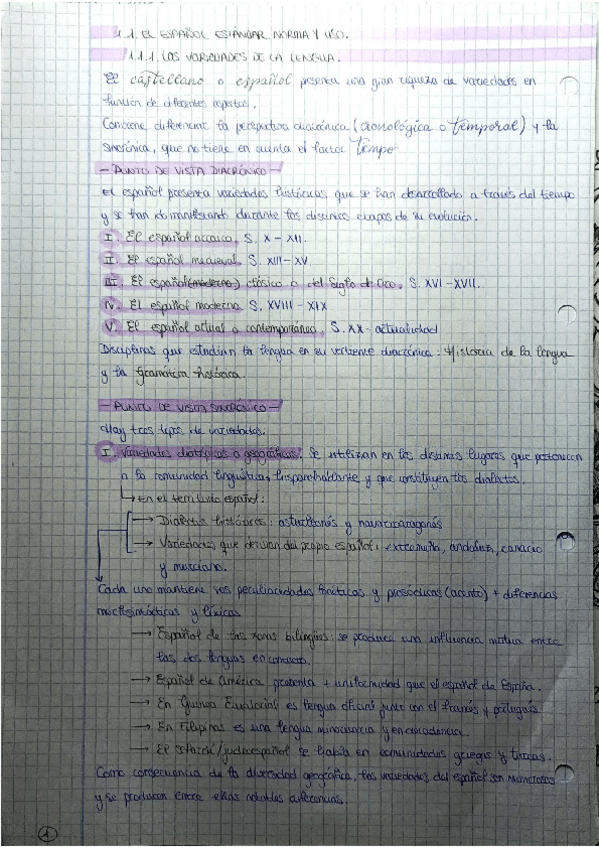 1.1. EL ESPAÑOL ESTÁNDAR. NORMA Y USO.
1.1.1. LAS VARIEDADES DE LA LENGUA.
El castellano o español presenta una gran riqueza de variedades en
función de diferentes aspectos.
Conviene diferenciar la perspectiva diacrónica (cronológica o temporal) y la
sincrónica, que no tiene en cuenta el factor tiempo
- PUNTO DE VISTA DIACRÓNICO -
El español presenta variedades históricas que se han desarrollado a través del tiempo
y se han ido manifestando durante las distintas etapas de su evolución.
I. El español arcaico. S. X - XII.
II. El español medieval. S. XIII - XV.
III. El español (moderno) clásico o del Siglo de Oro. S. XVI - XVII.
IV. El español moderno. S. XVIII - XIX
V. El español actual o contemporáneo. S. XX - actualidad
Disciplinas que estudian la lengua en su vertiente diacrónica: Historia de la lengua
y la Gramática histórica.
- PUNTO DE VISTA SINCRÓNICO -
Hay tres tipos de variedades.
I. Variedades diatópicas o geográficas. Se utilizan en los distintos lugares que pertenecen
a la comunidad lingüística hispanohablante y que constituyen los dialectos.
↳ En el territorio español:
→ Dialectos históricos: asturleonés y navarroaragonés
→ Variedades que derivan del propio español: extremeño, andaluz, canario
y murciano.
Cada uno mantiene sus peculiaridades fonéticas y prosódicas (acento) + diferencias
morfosintácticas y léxicas
→ Español de las zonas bilingües: se produce una influencia mutua entre
las dos lenguas en contacto.
→ Español de América presenta + uniformidad que el español de España.
→ En Guinea Ecuatorial es lengua oficial junto con el francés y portugués
→ En Filipinas es una lengua minoritaria y en decadencia.
→ El sefardí/judeoespañol se habla en comunidades griegas y turcas.
Como consecuencia de la diversidad geográfica, las variedades del español son numerosas
y se producen entre ellas notables diferencias.
1